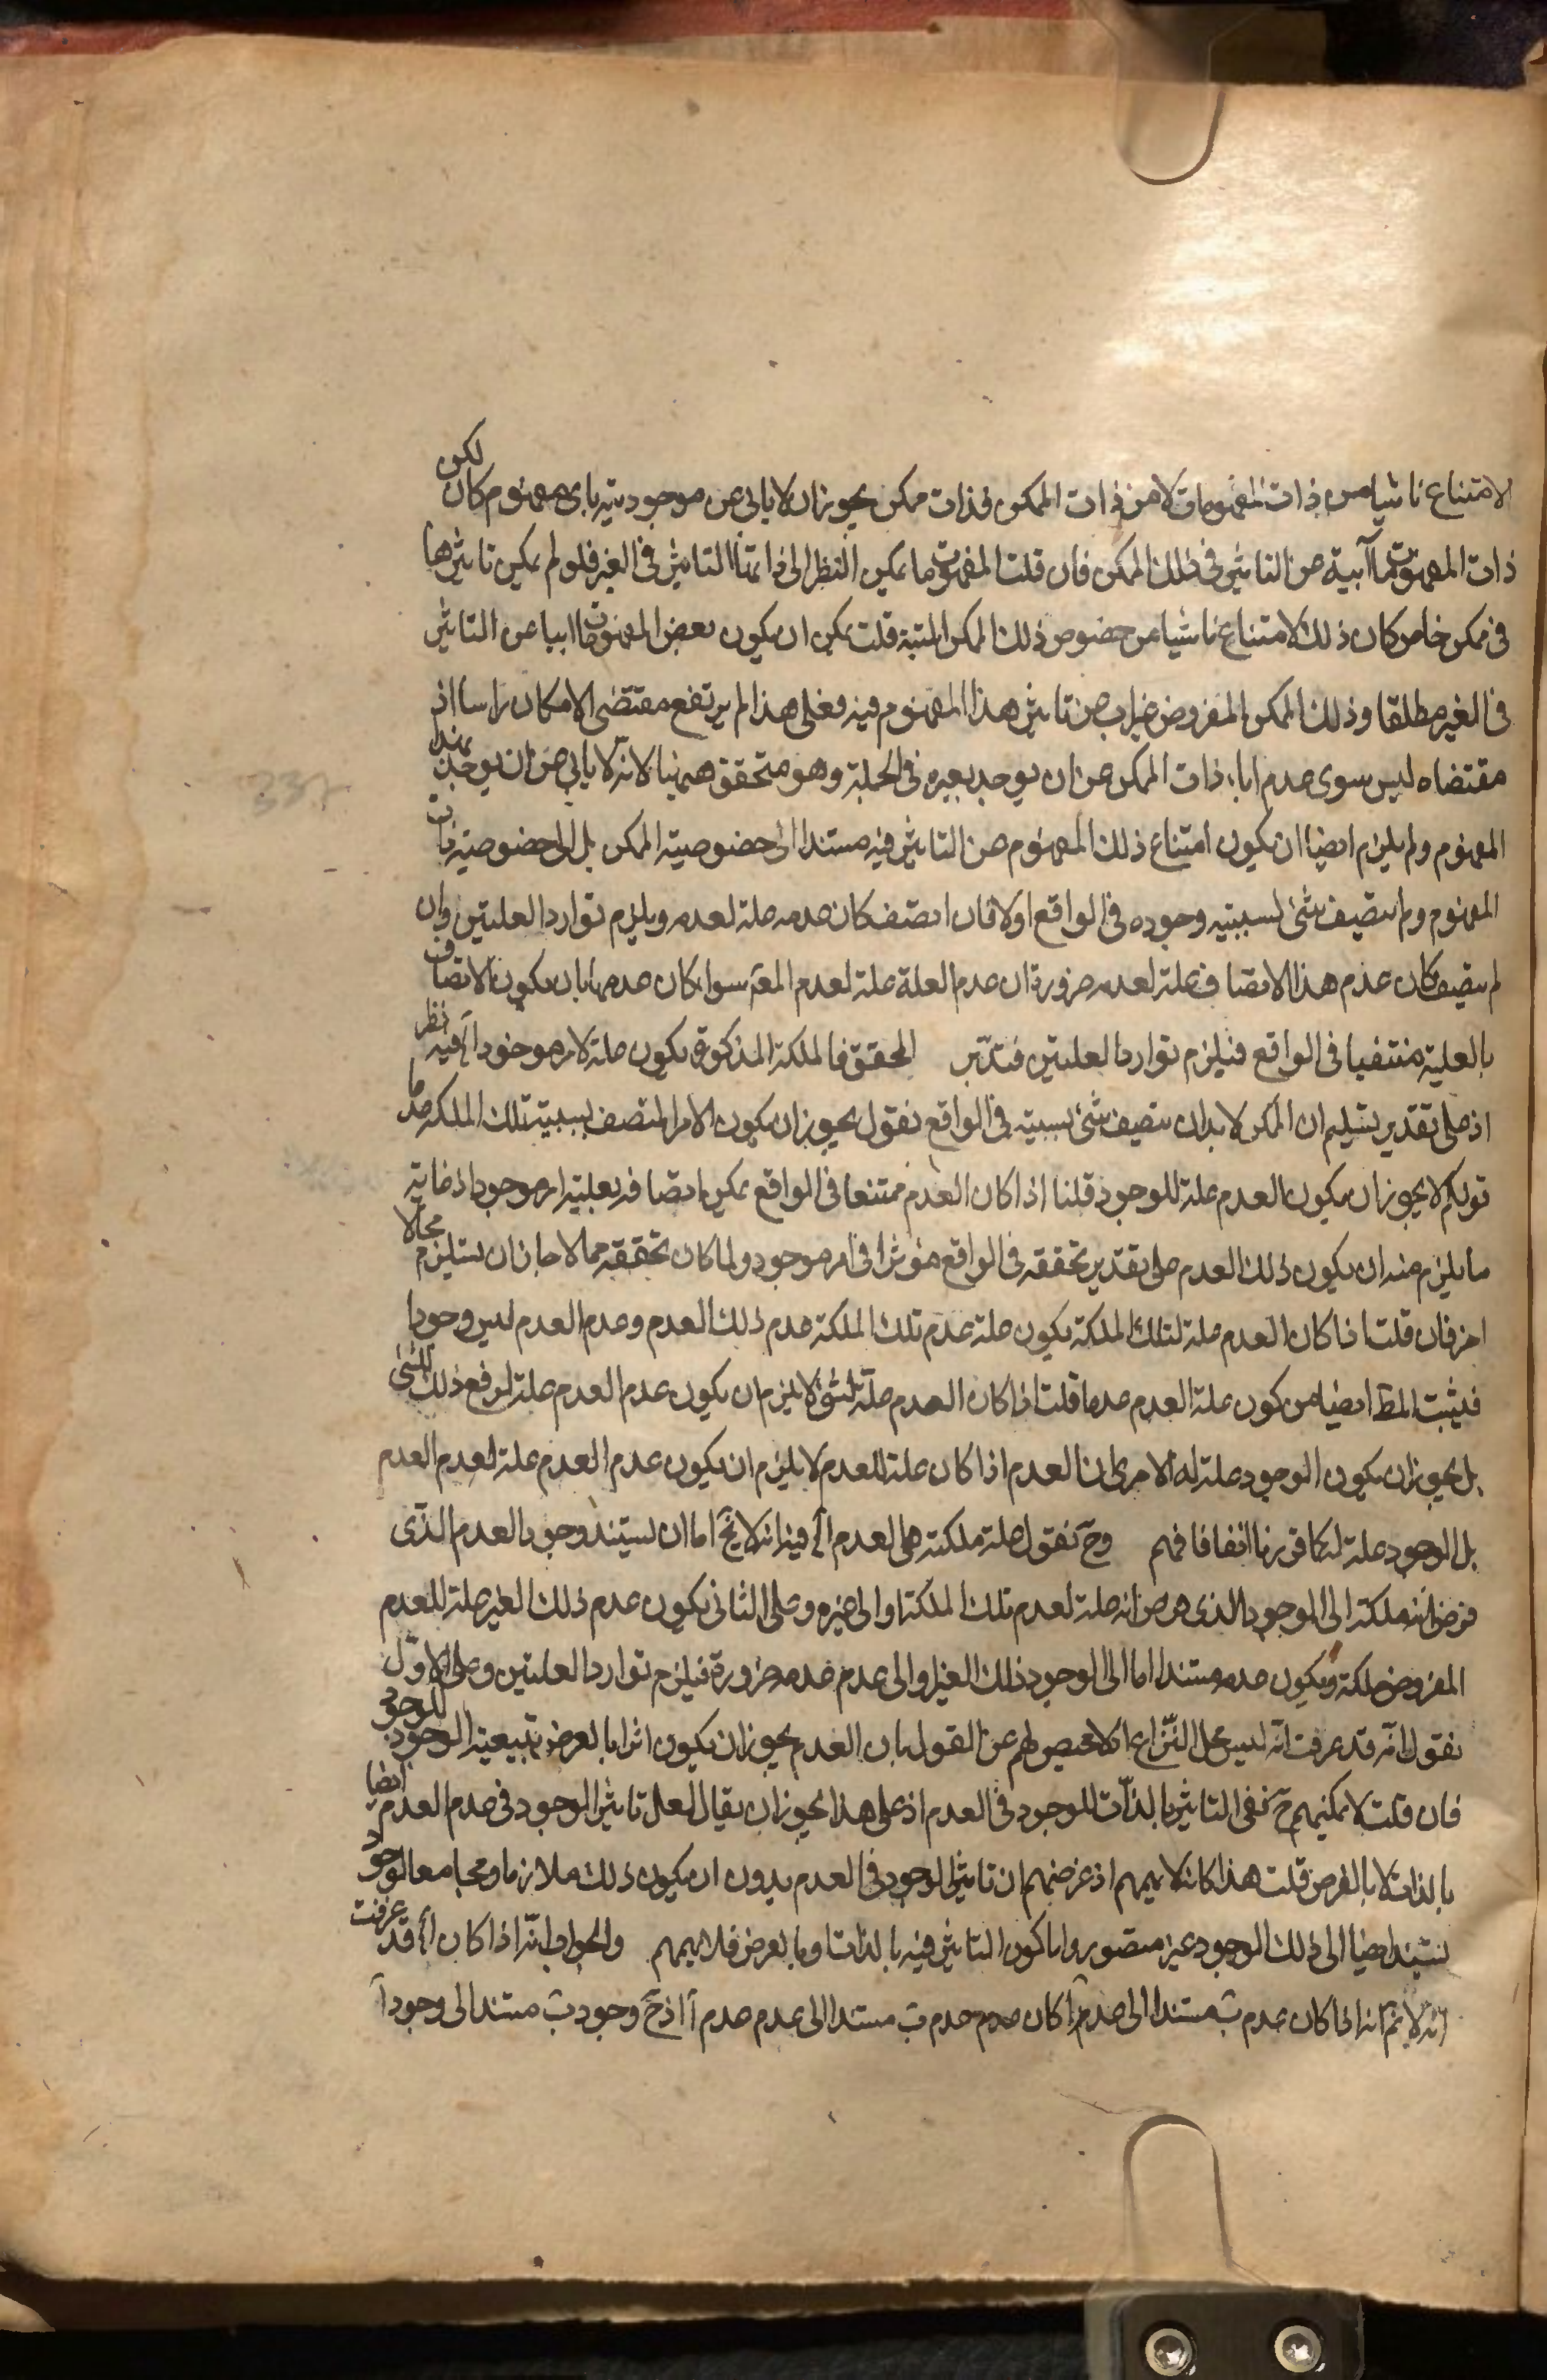 الامتناع ناشيا من ذات المفهومات لا من ذات الممكن فذات ممكن يجوز ان لا يابى عن موجوديته باى مفهوم كان لكن
ذات المفهومات آبية عن التاثير فى ذلك الممكن فان قلت المفهومات ما يمكن النظر الى ذاتها التاثير فى الغير فلو لم يمكن تاثيرها
فى ممكن خاص كان ذلك الامتناع ناشيا من خصوص ذلك الممكن البتة قلت يمكن ان يكون بعض المفهومات ابيا عن التاثير
فى الغير مطلقا وذلك الممكن المفروض غير اب عن تاثير هذا المفهوم فيه فعلى هذا لم يرتفع مقتضى الامكان راسا اذ
مقتضاه ليس سوى عدم اباء ذات الممكن عن ان يوجد بغيره فى الجملة وهو متحقق ههنا لانه لا يابى عن ان يوجد بهذا
المفهوم ولم يلزم ايضا ان يكون امتناع ذلك المفهوم عن التاثير فيه مستندا الى خصوصية الممكن بل الى خصوصية ذات
المفهوم ولم يتصف شئ بسببية وجوده فى الواقع اولا فان اتصف كان عدمه علة لعدمه ويلزم توارد العلتين وان
لم يتصف كان عدم هذا الاتصاف علة لعدمه ضرورة ان عدم العلة علة لعدم المعلول سواء كان عدمها بان يكون الاتصاف
بالعلية منتفيا فى الواقع فيلزم توارد العلتين فتدبر المحقق فالملكة المذكورة يكون علة لامر موجود آه فيه نظر
اذ على تقدير تسليم ان الممكن لابد ان يتصف شئ بسببيته فى الواقع نقول يجوز ان يكون الامر المتصف بسببية تلك الملكة عدما
قولكم لا يجوز ان يكون العدم علة للوجود قلنا اذا كان العدم ممتنعا فى الواقع يمكن اتصافه بعلية امر موجود اذ غاية
ما يلزم منه ان يكون ذلك العدم على تقدير تحققه فى الواقع مؤثرا فى امر موجود ولما كان تحققه محالا جاز ان يستلزم محالا
اخر فان قلت اذا كان العدم علة لتلك الملكة يكون علة عدم تلك الملكة عدم ذلك العدم وعدم العدم ليس وجودا
فيثبت المط ايضا من كون علة العدم عدما قلت اذا كان العدم علة لشئ لا يلزم ان يكون عدم العدم علة لرفع ذلك الشئ
بل يجوز ان يكون الوجود علة له الا ترى ان العدم اذا كان علة للعدم لا يلزم ان يكون عدم العدم علة لعدم العدم
بل الوجود علة له كما قررنا انفا فافهم وح نقول علة ملكته هى لعدم آه فيه انه لا يخ اما ان يستند وجود العدم الذى
فرض انه ملكة الى الموجود الذى فرض انه علة لعدم تلك الملكة او الى غيره وعلى الثانى يكون عدم ذلك الغير علة للعدم
المفروض ملكة ويكون عدمه مستندا اما الى الوجود ذلك الغير او الى عدم عدمه ضرورة فيلزم توارد العلتين وعلى الاول
نقول انه قد عرفت انه ليس محل النزاع مما لا محيص لهم عن القول بان العدم يجوز ان يكون اثرا بالعرض بتبعية الوجود للوجود
فان قلت لا يمكنهم ح نفى التاثير بالذات للوجود فى العدم اذ على هذا يجوز ان يقال لعل تاثير الوجود فى عدم العدم ايضا
بالذات لا بالعرض قلت هذا كانه لا يهمهم اذ غرضهم ان تاثير الوجود فى العدم بدون ان يكون ذلك ملازما ومجامعا لوجود
يستند ايضا الى ذلك الوجود غير متصور واما كون التاثير فيه بالذات وبالعرض فلا يهمهم والجواب انه اذا كان آه قد عرفت
انه لا يتم انه اذا كان عدم ب مستندا الى عدم آ كان عدم عدم ب مستندا الى عدم عدم آ اذ ح وجود ب مستند الى وجود آ